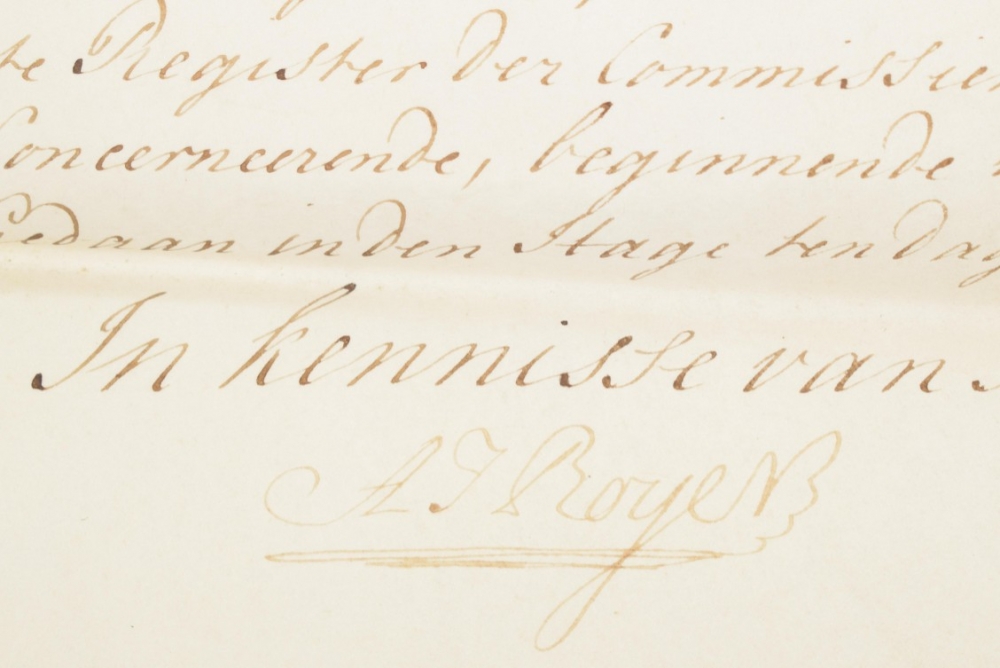 te Register der Commissien
Concerneerende, beginnende
Gedaan in den Hage ten dag
In kennisse van
A J Royen